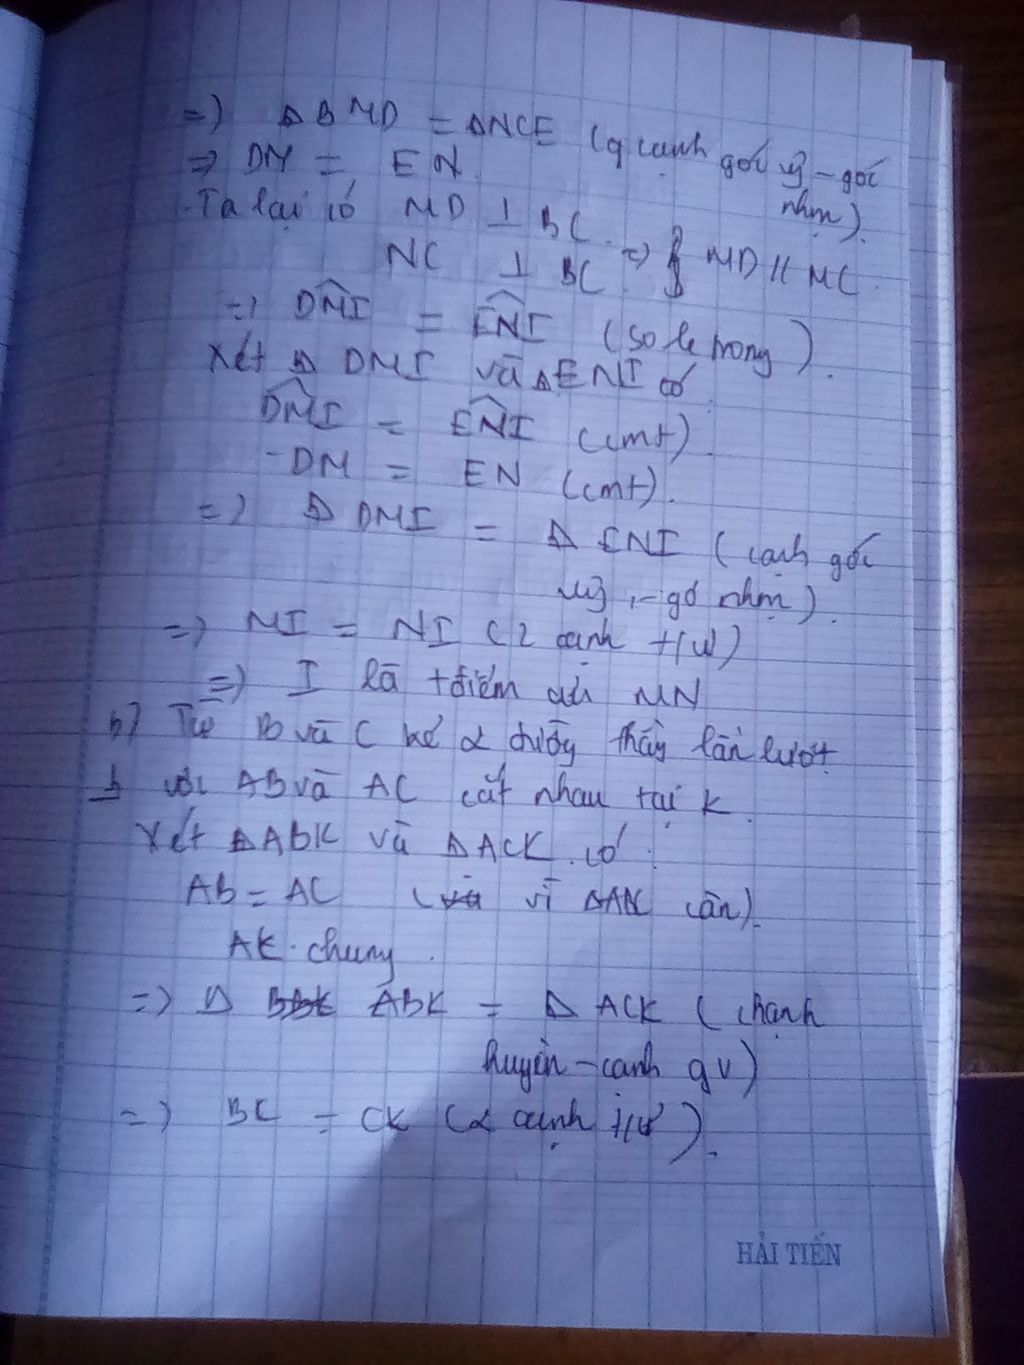 =) Δ BMD = ΔNCE (cạnh góc vg - góc
nhọn).
=> DM = EN.
Ta lại có MD ⊥ BC
NC ⊥ BC =) MD // MC.
=) DMI = ENI (so le trong).
Xét Δ DMI và ΔENI có
DMI = ENI (cmt)
- DM = EN (cmt).
=) Δ DMI = Δ ENI (cạnh góc
- gó nhọn).
=) MI = NI (2 cạnh t/ư)
=) I là tđiểm của MN
b) Từ B và C kẻ 2 đường thẳng lần lượt
⊥ với AB và AC cắt nhau tại K.
Xét ΔABK và ΔACK có:
AB = AC ( vì ΔABC cân).
AK chung.
=) Δ ABK = Δ ACK (chạnh
huyền - cạnh gv)
=) BK = CK (2 cạnh t/ư).
HẢI TIẾN